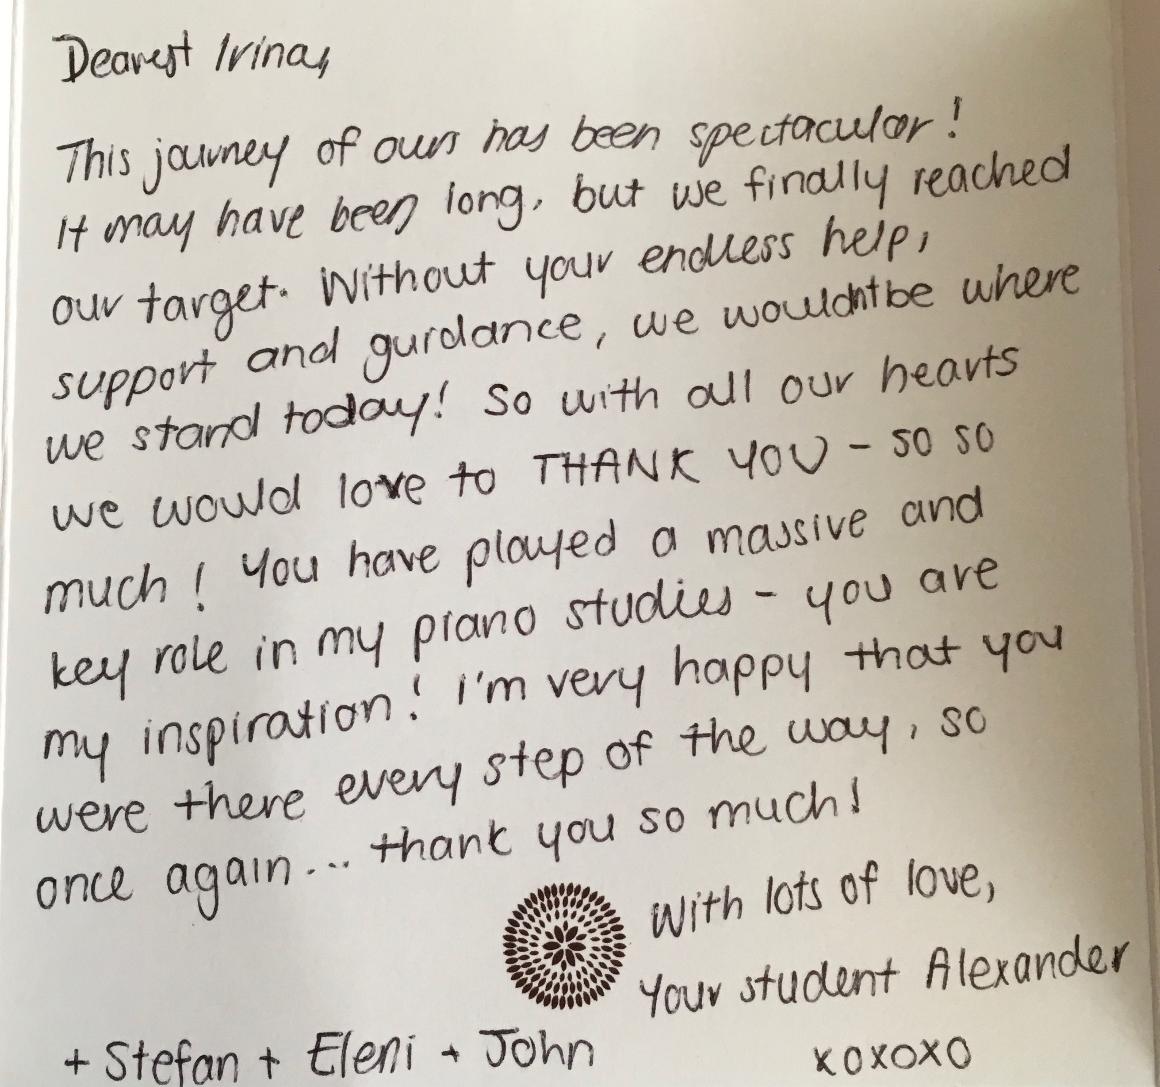 Dearest Irina,
This journey of ours has been spectacular!
It may have been long, but we finally reached
our target. Without your endless help,
support and guidance, we wouldn't be where
we stand today! So with all our hearts
we would love to THANK YOU - so so
much! You have played a massive and
key role in my piano studies - you are
my inspiration! I'm very happy that you
were there every step of the way, so
once again... thank you so much!
With lots of love,
Your student Alexander
+ Stefan + Eleni + John
xoxoxo